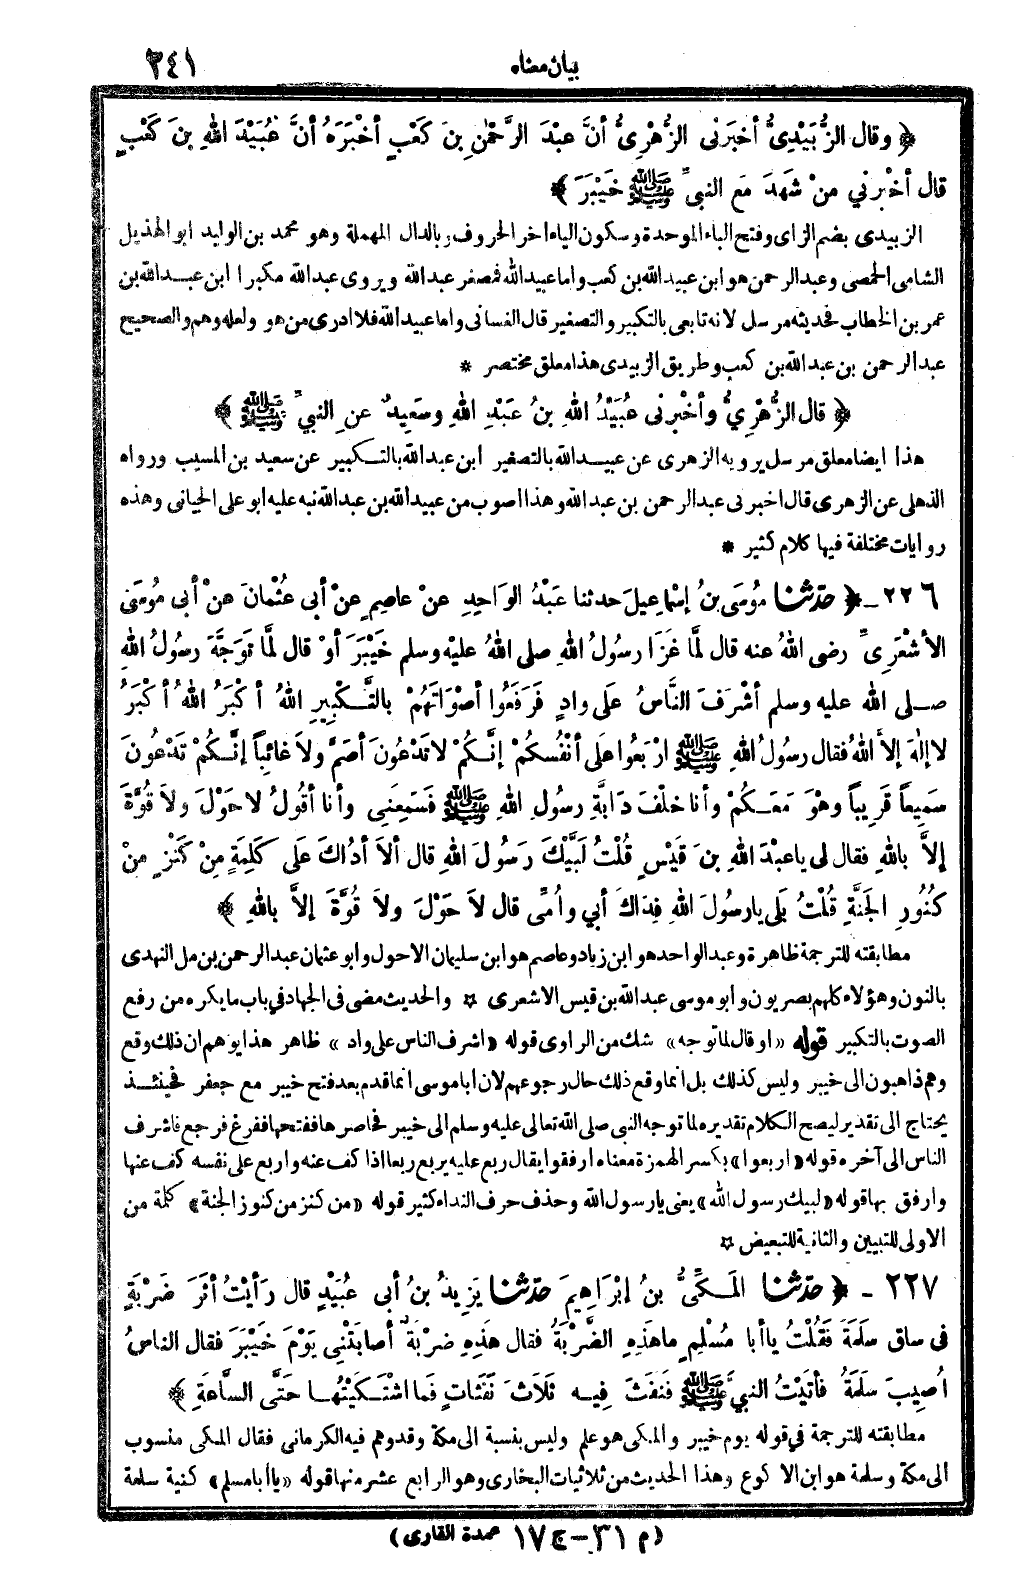 ٢٤١
بيان معناه
﴿ وقال الزُّبَيْدِىُّ أخبَرَنى الزُّهْرِىُّ أنَّ عبْدَ الرَّحْمٰنِ بنَ كَعْبٍ أخْبَرَهُ أنَّ عُبَيْدَ اللهِ بنَ كَعْبٍ
قال أخْبرَنِي منْ شَهِدَ مَع النبىِّ ﷺ خَيْبَرَ ﴾
الزبيدى بضم الزاى وفتح الباء الموحدة وسكون الياء اخر الحروف وبالدال المهملة وهو محمد بن الوليد ابو الهذيل
الشامى الحمصى وعبد الرحمن هو ابن عبيد الله بن كعب واما عبيد الله فمصغر عبد الله ويروى عبد الله مكبرا ابن عبد الله بن
عمر بن الخطاب فحديثه مرسل لانه تابعى بالتكبير والتصغير قال الغسانى واما عبيد الله فلا ادرى من هو ولعله وهم والصحيح
عبد الرحمن بن عبد الله بن كعب وطريق الزبيدى هذا معلق مختصر *
﴿ قال الزُّهْرِيُّ وأخْبرَنى عُبَيْدُ اللهِ بنُ عَبْدِ اللهِ وسَعِيدٌ عنِ النبيِّ ﷺ ﴾
هذا ايضا معلق مرسل يرويه الزهرى عن عبيد الله بالتصغير ابن عبد الله بالتكبير عن سعيد بن المسيب ورواه
الذهلى عن الزهرى قال اخبرنى عبد الرحمن بن عبد الله وهذا اصوب من عبيد الله بن عبد الله نبه عليه ابو على الجيانى وهذه
روايات مختلفة فيها كلام كثير *
٢٢٦ ـ ﴿ حدّثنا مُوسَى بنُ إسْماعِيلَ حدثنا عَبْدُ الوَاحِدِ عنْ عاصِمٍ عنْ أبى عُثْمانَ عنْ أبى مُوسَى
الأشْعَرِىِّ رضى اللهُ عنه قال لَمَّا غَزَا رسولُ اللهِ صلى اللهُ عليْه وسلم خَيْبَرَ أوْ قال لَمَّا تَوَجَّهَ رسولُ اللهِ
صلى الله عليه وسلم أشْرَفَ النَّاسُ عَلَى وادٍ فَرَفَعُوا أصْوَاتَهُمْ بالتَّكْبِيرِ اللهُ أكْبَرُ اللهُ أكْبَرُ
لا إلٰهَ إلاَّ اللهُ فقال رسولُ اللهِ ﷺ ارْبَعُوا عَلَى أنْفُسِكُمْ إنَّكُمْ لا تَدْعُونَ أصَمَّ ولاَ غائِباً إنَّكُمْ تَدْعُونَ
سَمِيعاً قَرِيباً وهْوَ مَعَكُمْ وأنا خَلْفَ دَابَّةِ رسولِ اللهِ ﷺ فَسَمِعَنِى وأنا أقُولُ لا حَوْلَ ولاَ قُوَّةَ
إلاَّ باللهِ فقال لى يا عبْدَ اللهِ بنَ قَيْسٍ قُلْتُ لَبَّيْكَ رَسُولَ اللهِ قال ألاَ أدُلُّكَ عَلَى كَلِمَةٍ مِنْ كَنْزٍ مِنْ
كُنُوزِ الجَنَّةِ قُلْتُ بَلَى يا رسولَ اللهِ فِدَاكَ أبي وأُمِّى قال لاَ حَوْلَ ولاَ قُوَّةَ إلاَّ باللهِ ﴾
مطابقته للترجمة ظاهرة وعبد الواحد هو ابن زياد وعاصم هو ابن سليمان الاحول وابو عثمان عبد الرحمن بن مل النهدى
بالنون وهؤلاء كلهم بصريون وابو موسى عبد الله بن قيس الاشعرى ✡ والحديث مضى فى الجهاد في باب ما يكره من رفع
الصوت بالتكبير قوله «او قال لما توجه» شك من الراوى قوله «اشرف الناس على واد» ظاهر هذا يوهم ان ذلك وقع
وهم ذاهبون الى خيبر وليس كذلك بل انما وقع ذلك حال رجوعهم لان ابا موسى انما قدم بعد فتح خيبر مع جعفر فحينئذ
يحتاج الى تقدير ليصح الكلام تقديره لما توجه النبى صلى الله تعالى عليه وسلم الى خيبر فحاصرها ففتحها ففرغ فرجع فاشرف
الناس الى آخره قوله «اربعوا» بكسر الهمزة معناه ارفقوا يقال ربع عليه يربع ربعا اذا كف عنه واربع على نفسه كف عنها
وارفق بها قوله «لبيك رسول الله» يعنى يا رسول الله وحذف حرف النداء كثير قوله «من كنز من كنوز الجنة» كلمة من
الاولى للتبيين والثانية للتبعيض ✡
٢٢٧ ـ ﴿ حدّثنا المَكِّىُّ بنُ إبْرَاهِيمَ حدّثنا يَزِيدُ بنُ أبى عُبَيْدٍ قال رَأيْتُ أثَرَ ضَرْبَةٍ
فى ساقِ سلَمَةَ فَقُلْتُ يا أبا مُسْلِمٍ ما هَذِهِ الضَّرْبَةُ فقال هَذِهِ ضرْبَةٌ أصابَتْنِي يَوْمَ خَيْبَرَ فقال الناسُ
أُصِيبَ سلَمَةُ فأتَيْتُ النبيَّ ﷺ فَنَفَثَ فِيهِ ثَلاَثَ نَفَثَاتٍ فَما اشْتَكَيْتُها حَتَّى السَّاعَةِ ﴾
مطابقته للترجمة في قوله يوم خيبر والمكى هو علم وليس بنسبة الى مكة وقد وهم فيه الكرمانى فقال المكى منسوب
الى مكة وسلمة هو ابن الاكوع وهذا الحديث من ثلاثيات البخارى وهو الرابع عشر منها قوله «يا أبا مسلم» كنية سلمة
(م ٣١ ـ ج ١٧ عمدة القارى)